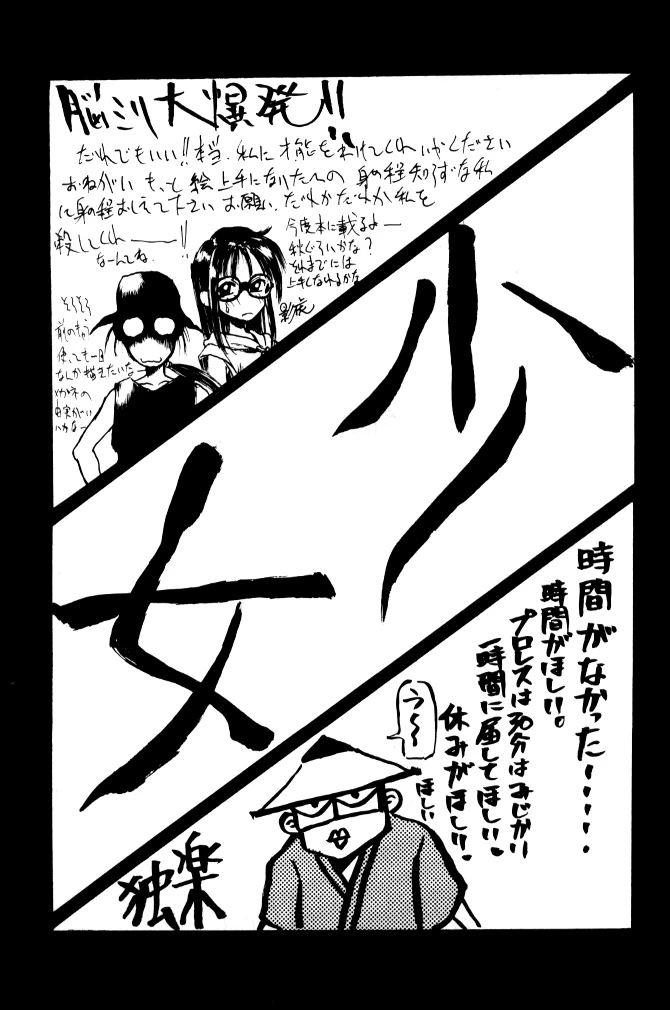 脳ミソ大爆発!!
だれでもいい!!本当、私に才能をわけてくれいやください
おねがい もっと絵上手になりたいの 身の程知らずな私
に身の程おしえて下さい お願い、だれかだれか私を
殺してくれ――!!
なーんてね。
今度本に載るよー
秋ぐらいかな?
それまでには
上手くなれるかな
影虎
そろそろ
なんか描きたいな
少女
時間がなかった・・・・・
時間がほしい。
プロレスは30分はみじかい
一時間に届してほしい。
休みがほしい。
ほしい
う〜〜
独楽